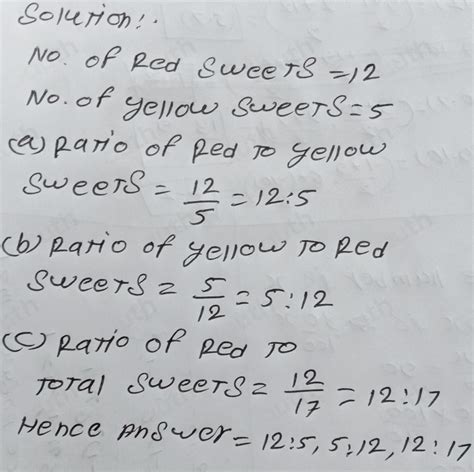 Solution:.
No. of Red Sweets = 12
No. of yellow Sweets = 5
(a) Ratio of Red To yellow
Sweets = 12/5 = 12:5
(b) Ratio of yellow To Red
Sweets = 5/12 = 5:12
(c) Ratio of Red To
Total Sweets = 12/17 = 12:17
Hence Answer = 12:5, 5:12, 12:17